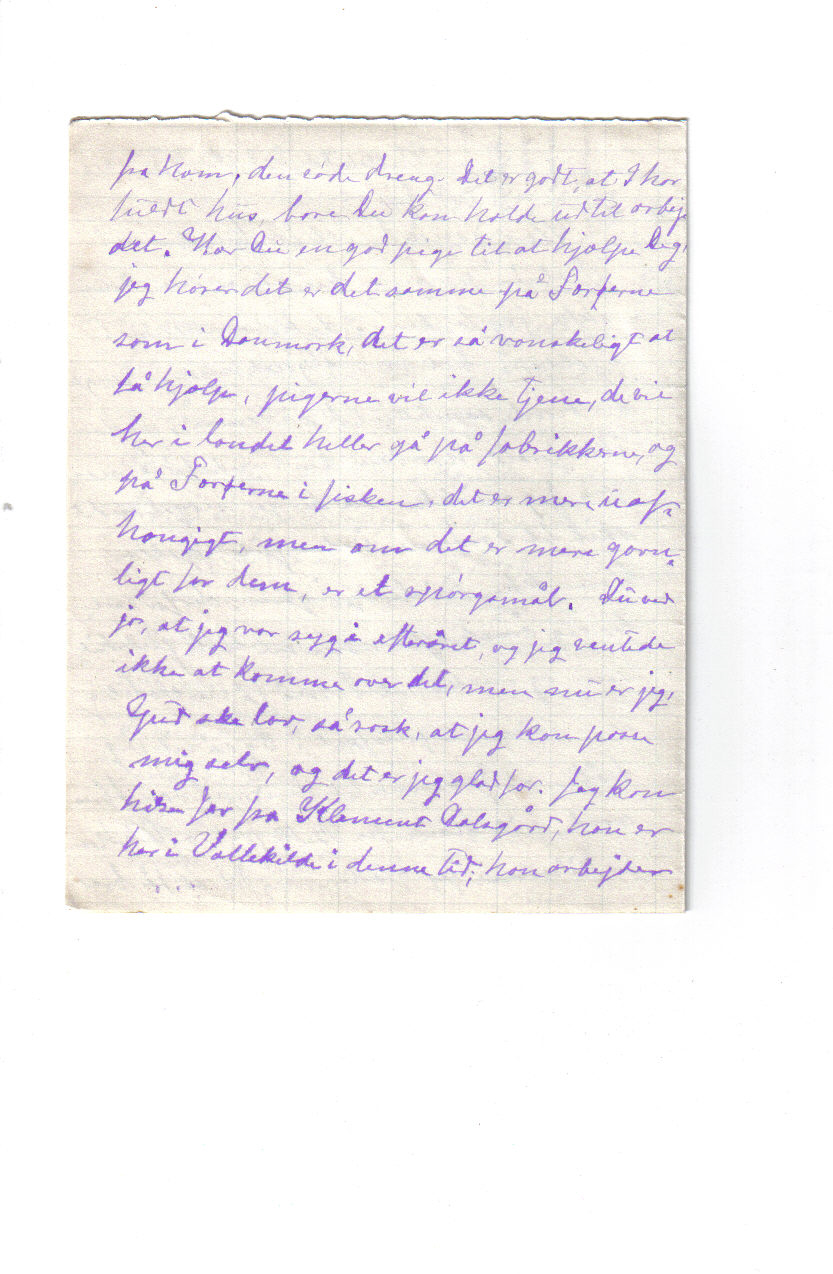 fra ham, den søde dreng. Det er godt, at I har
fuldt hus, bare Du kan holde ud til arbej
det. Har Du en god pige til at hjælpe Dig,
jeg hører det er det samme på Førøerne
som i Danmark, det er så vanskeligt at
få hjælp, pigerne vil ikke tjene, de vil
her i landet heller gå på fabrikkerne, og
på Førøerne i fisken, det er mere uaf-
hængigt, men om det er mere gavn-
ligt for dem, er et spørgsmål. Du ved
jo, at jeg var syg i efteråret, og jeg ventede
ikke at komme over det, men nu er jeg,
Gud ske lov, så rask, at jeg kan passe
mig selv, og det er jeg glad for. Jeg kan
hilse fra Klement Dalsgård, han er
her i Vallekilde i denne tid; han arbejder